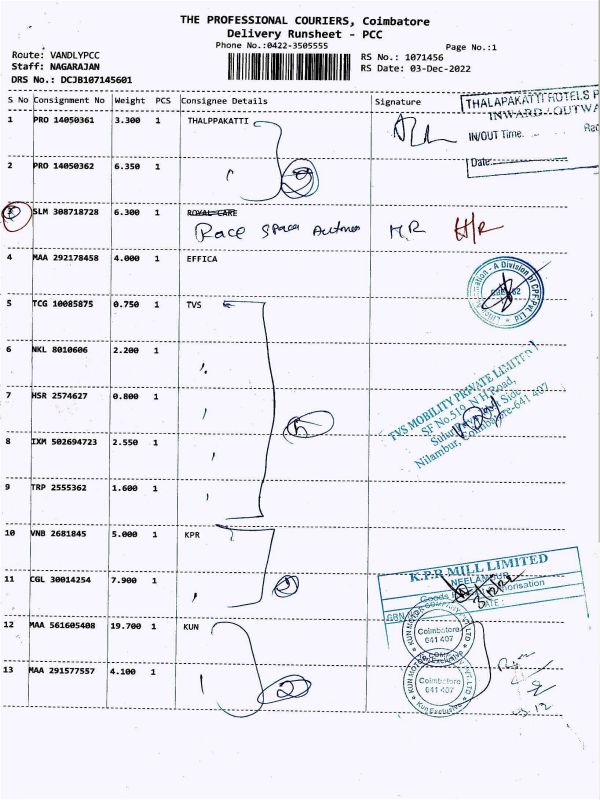 THE PROFESSIONAL COURIERS, Coimbatore
Delivery Runsheet - PCC
Phone No.:0422-3505555
Page No.:1
Route: VANDLYPCC
Staff: NAGARAJAN
DRS No.: DCJB107145601
RS No.: 1071456
RS Date: 03-Dec-2022
S No Consignment No Weight PCS Consignee Details Signature
1 PRO 14050361 3.300 1 THALPPAKATTI
THALAPAKATTI HOTELS P
INWARD / OUTWA
IN/OUT Time.
Date:
2 PRO 14050362 6.350 1
3 SLM 308718728 6.300 1 ROYAL CARE
Race Space
H/R
4 MAA 292178458 4.000 1 EFFICA
5 TCG 10085875 0.750 1 TVS
6 NKL 8010606 2.200 1
7 HSR 2574627 0.800 1
8 IXM 502694723 2.550 1
9 TRP 2555362 1.600 1
TVS MOBILITY PRIVATE LIMITED
SF No.519, N H Road,
Nilambur, Coimbatore-641 407
5
10 VNB 2681845 5.000 1 KPR
11 CGL 30014254 7.900 1
K.P.R MILL LIMITED
NEELAMBUR
12 MAA 561605408 19.700 1 KUN
13 MAA 291577557 4.100 1
2
Coimbatore
641 407
Coimbatore
641 407
Kun Exclusive